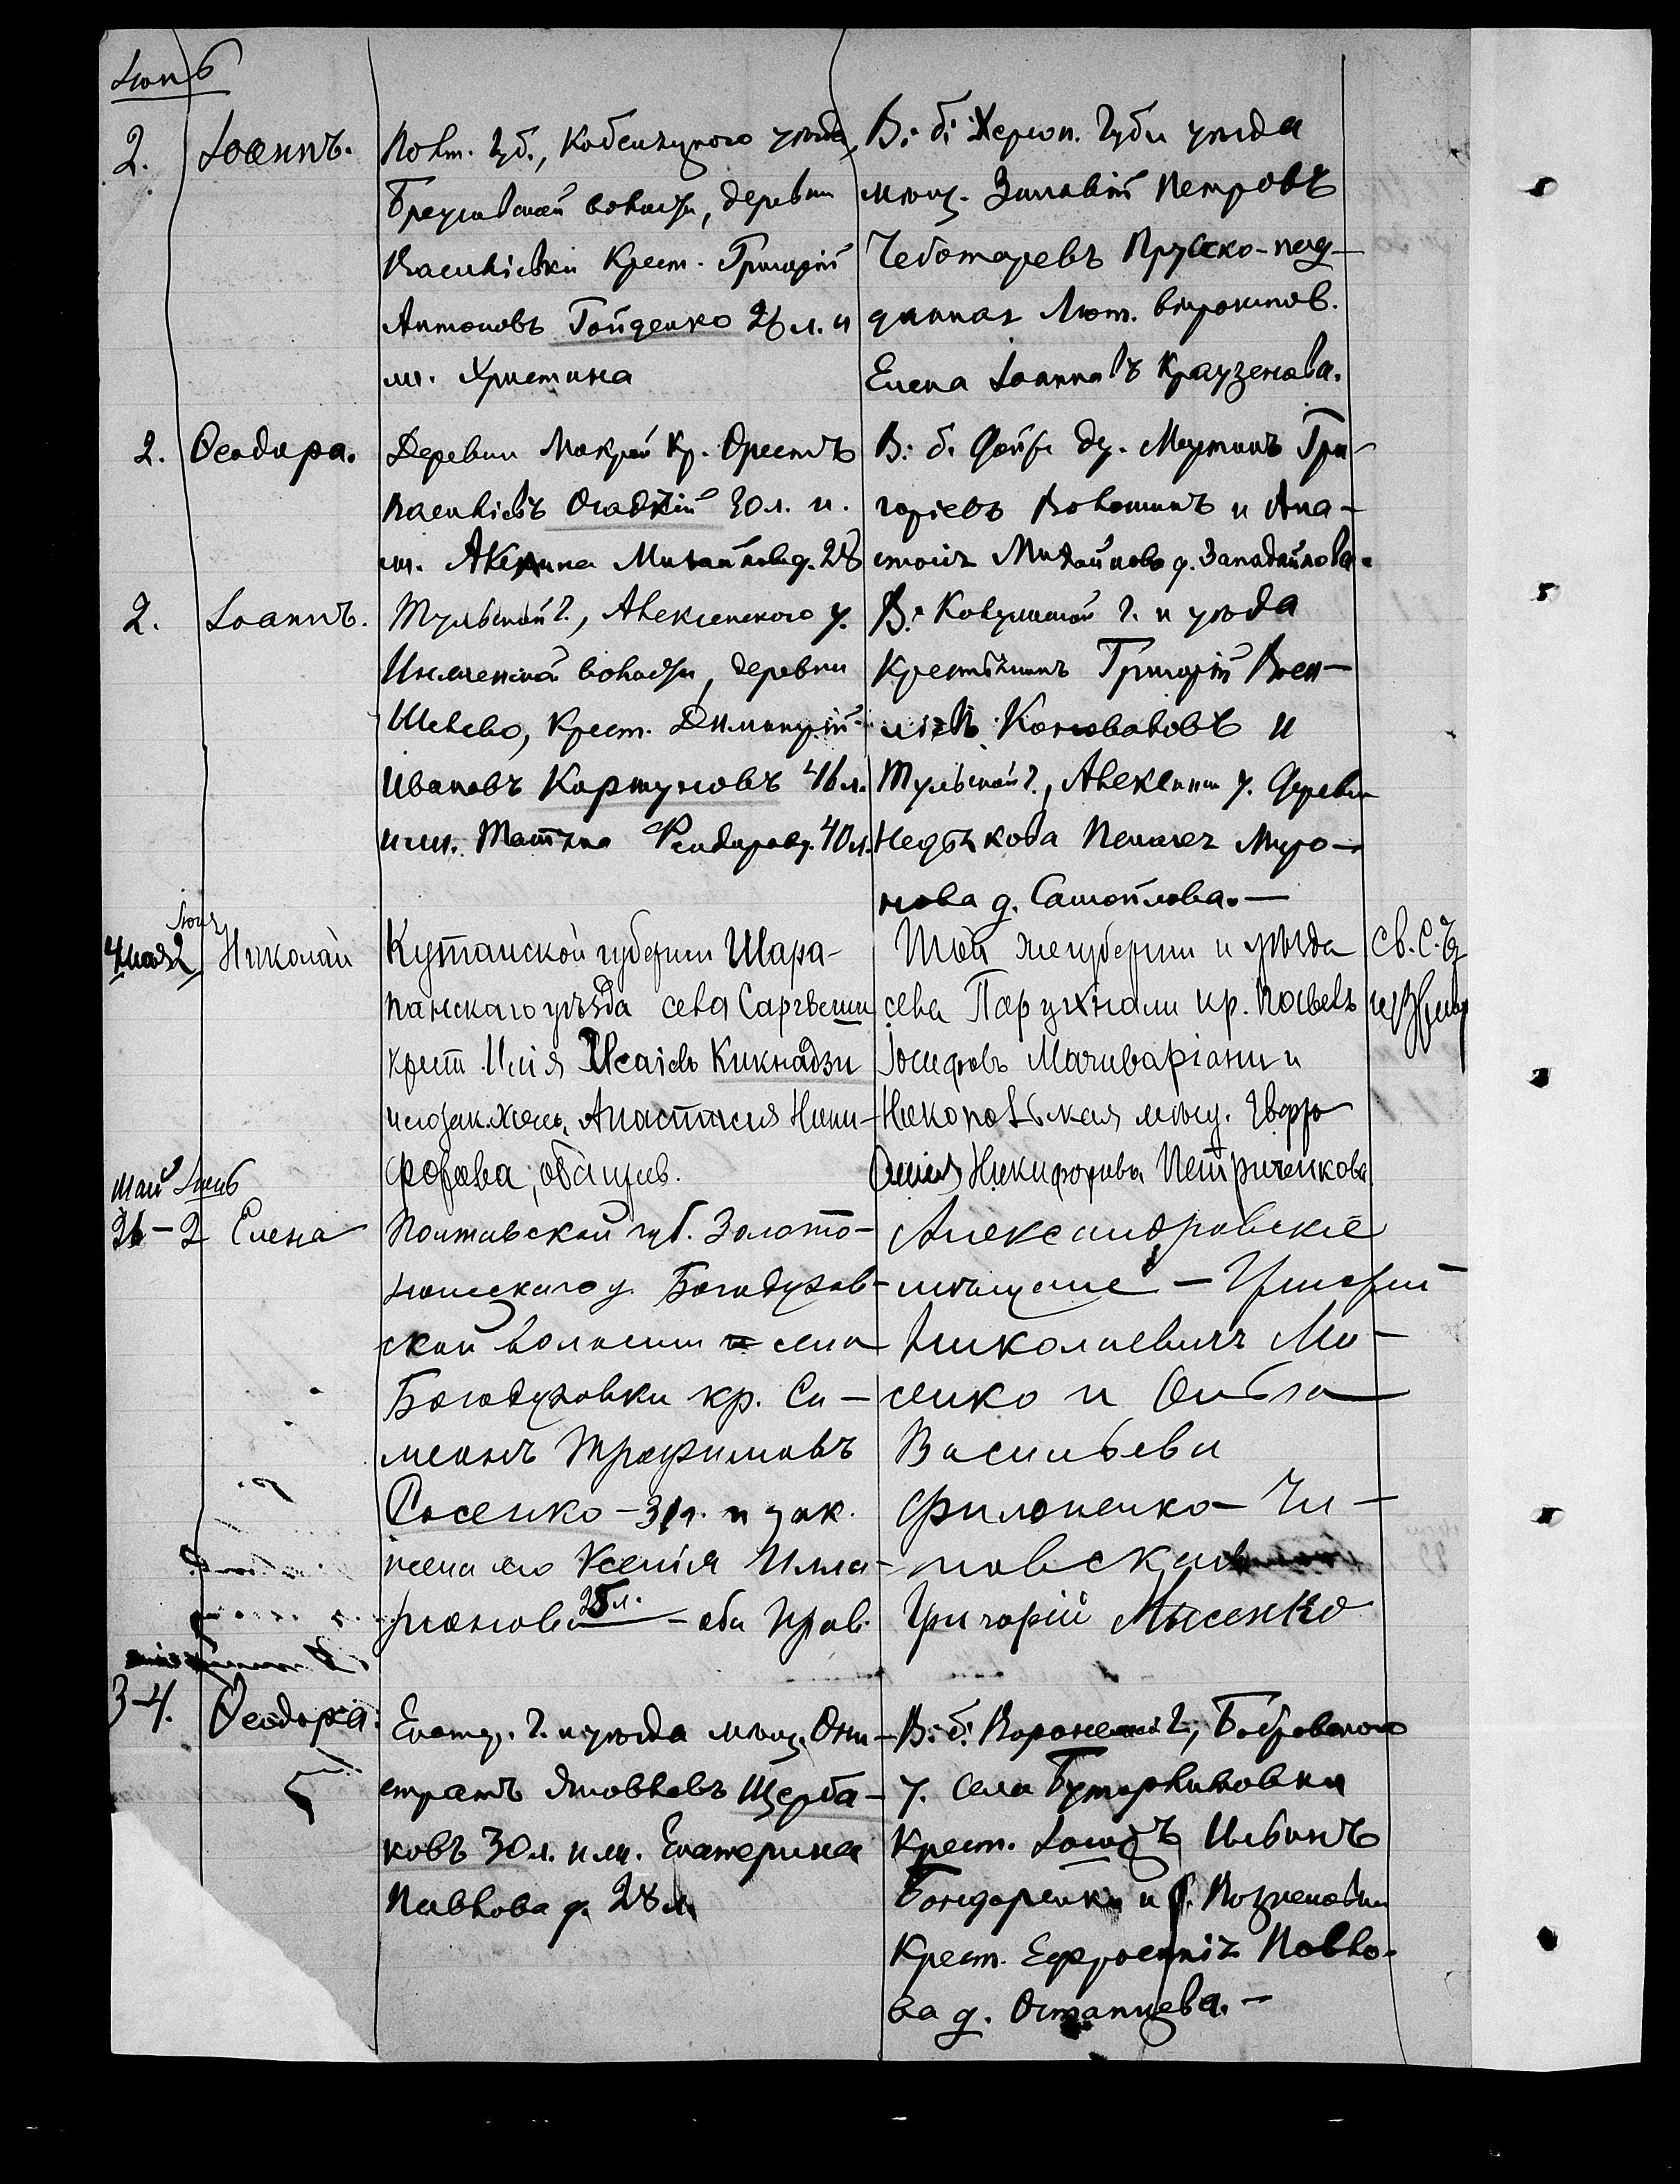 Іюнь
2. Іоаннъ.
Полт. губ., Кобелякского уѣзда
Браусовской волости, деревни
Василіевки Крест. Григорій
Антоновъ Гойденко 26 л. и
ж. Христина
В. б. Херсон. Губ. уѣзда
мѣщ. Зиновій Петровъ
Чеботаревъ Прусско-под-
данная Лют. вѣроисповѣд.
Елена Іоаннова Краузенова.
2. Ѳеодора.
Деревни Мокрой Кр. Орестъ
Василіевъ Осадкій 30 л. и.
ж. Акелина Михайлова д. 28
В. б. Мартинъ Гри-
горіевъ Волошинъ и Ана-
стасія Михайлова д. Западайлова.
2. Іоаннъ.
Тульской г., Алексинского у.
волости, деревни
Шелево, Крест. Димитрій
Ивановъ Картуновъ 46 л.
и ж. Татіана Феодорова д. 40 л.
В. Калужской г. и уѣзда
Крестьянинъ Григорій Васи-
ліевъ Коноваловъ и
Тульской г., Алексин у. Деревни
Недѣлкова Пелагея Миро-
нова д. Самойлова.—
Іюня
4 мая 2 Николай
Кутаиской губерніи Шара-
панскаго уѣзда села Саргвеши
крест. Илія Исаіевъ Кикнадзи
и его зак. жена Анастасія Ники-
форова, оба прав.
Той же губерніи и уѣзда
села Парцхнали кр. Павелъ
Іосифовъ Мачаваріани и
Никопольская мѣщ. Евфро
синія Никифорова Петриченкова
Св. С.
Май Іюнь
26 — 2 Елена
Полтавской губ. Золото-
ношскаго у. Богодухов-
ской волости села
Богодуховки кр. Си-
меонъ Трофимовъ
Сосенко — 31 л. и зак.
жена его Ксенія Илла-
ріонова 25 л. — оба прав.
Александровскіе
мѣщане — Григорій
Николаевичъ Мы-
сенко и Ольга
Васильева
Филоненко — Чи-
повская
Григорій Мысенко
3-4. Ѳеодора
Екатер. г. и уѣзда мѣщ. Они-
стратъ Яковлевъ Щерба-
ковъ 30 л. и ж. Екатерина
Павлова д. 28 л.
В. б. Воронежской г., Бобровскаго
у. села Бутырлиновки
Крест. Іосифъ Ильинъ
Бондаренко и с. Вознесовки
Крест. Ефросинія Павло-
ва д. Остапцева.—